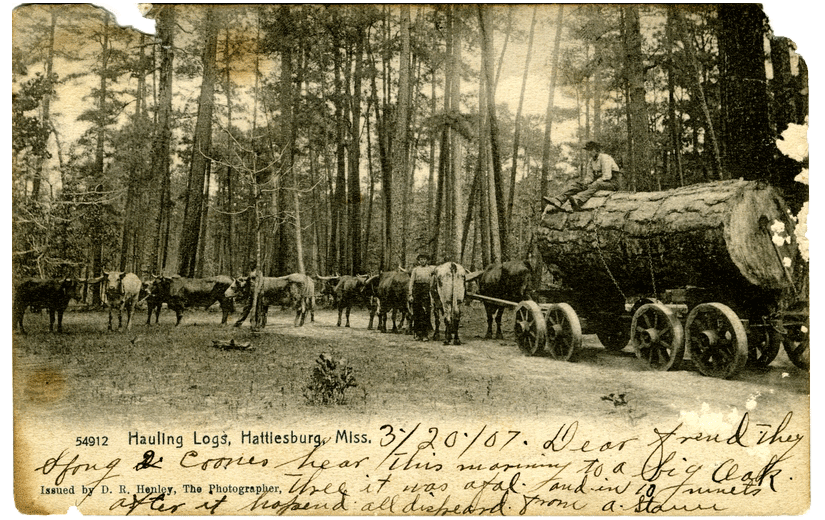 54912 Hauling Logs, Hattiesburg, Miss. 3/20/07. Dear frend they
Hong 2 Coones hear this morining to a big Oak.
Issued by D. R. Henley, The Photographer, three it was afal. and in 10 minets
after it hapend all dispeard. from a